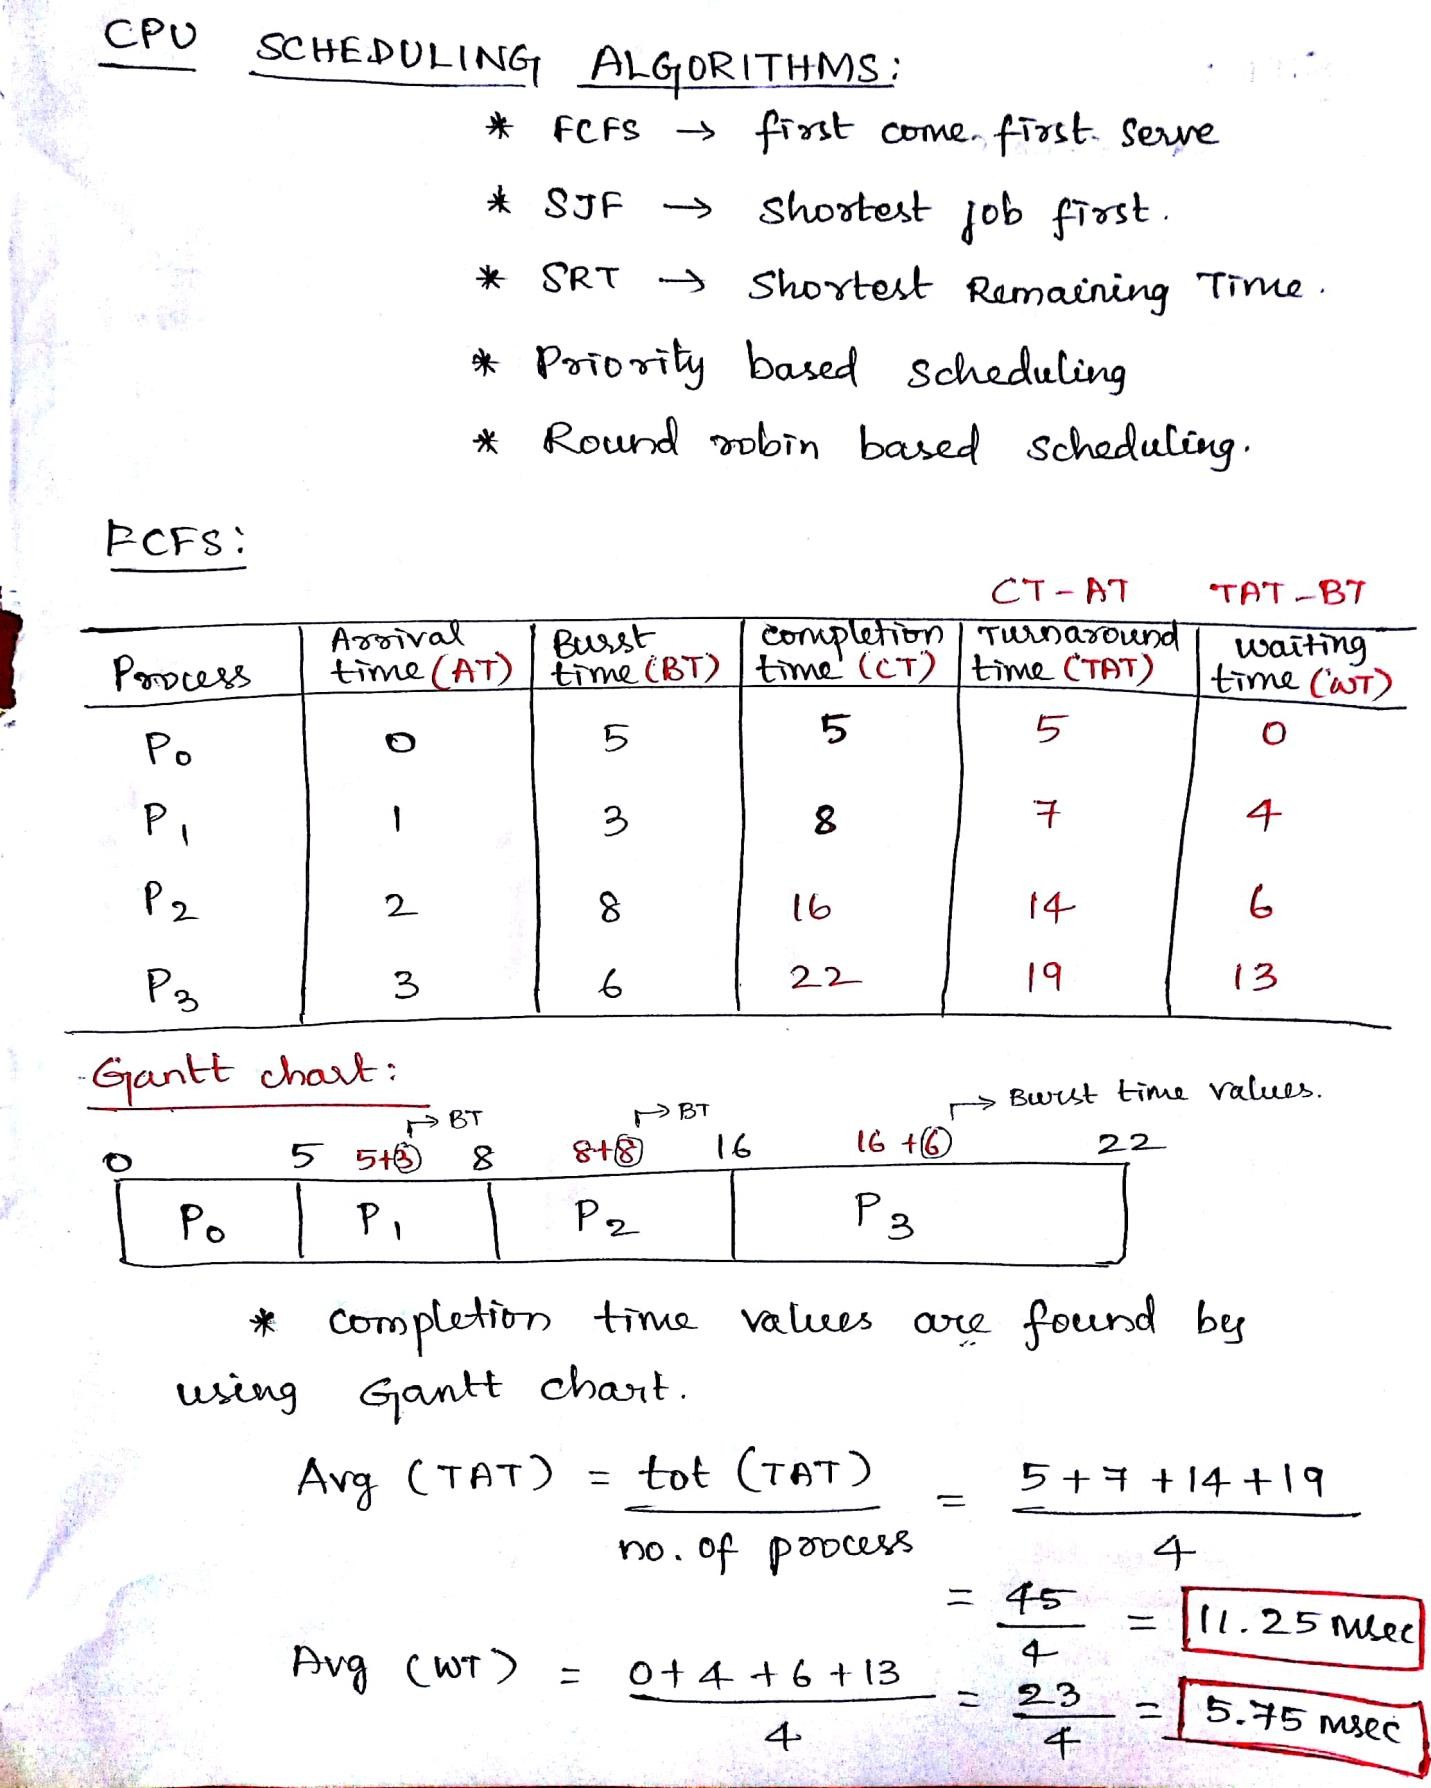 CPU SCHEDULING ALGORITHMS:
* FCFS → first come first serve
* SJF → Shortest job first.
* SRT → Shortest Remaining Time.
* Priority based scheduling
* Round robin based scheduling.
FCFS:
CT-AT TAT-BT
Process Arrival time (AT) Burst time (BT) completion time (CT) Turnaround time (TAT) waiting time (WT)
P0 0 5 5 5 0
P1 1 3 8 7 4
P2 2 8 16 14 6
P3 3 6 22 19 13
Gantt chart:
→ BT → BT → Burst time values.
0 5 5+3 8 8+8 16 16+6 22
P0 P1 P2 P3
* completion time values are found by
using Gantt chart.
Avg (TAT) = tot (TAT) / no. of process = 5+7+14+19 / 4
= 45 / 4 = 11.25 msec
Avg (WT) = 0+4+6+13 / 4 = 23 / 4 = 5.75 msec